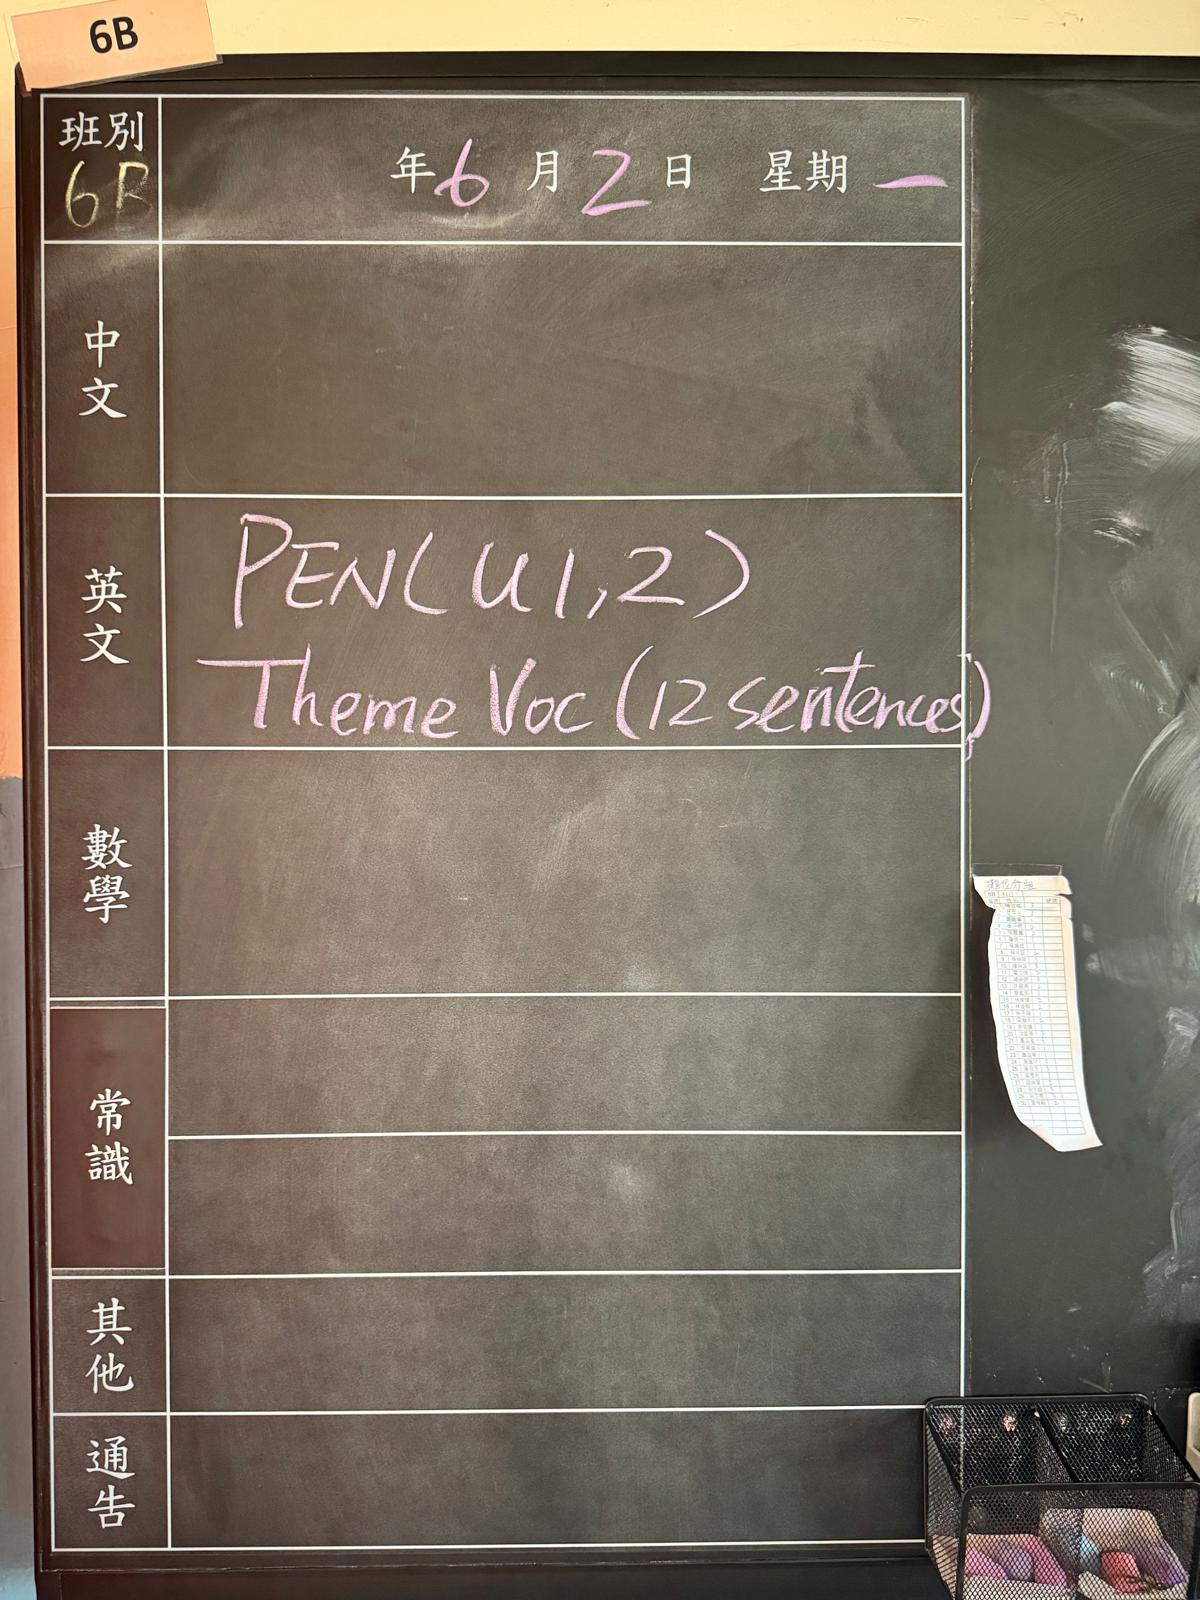 6B
班別
6B
年6月2日 星期一
中文
英文
PEN(U1,2)
Theme Voc (12 sentences)
數學
常識
其他
通告